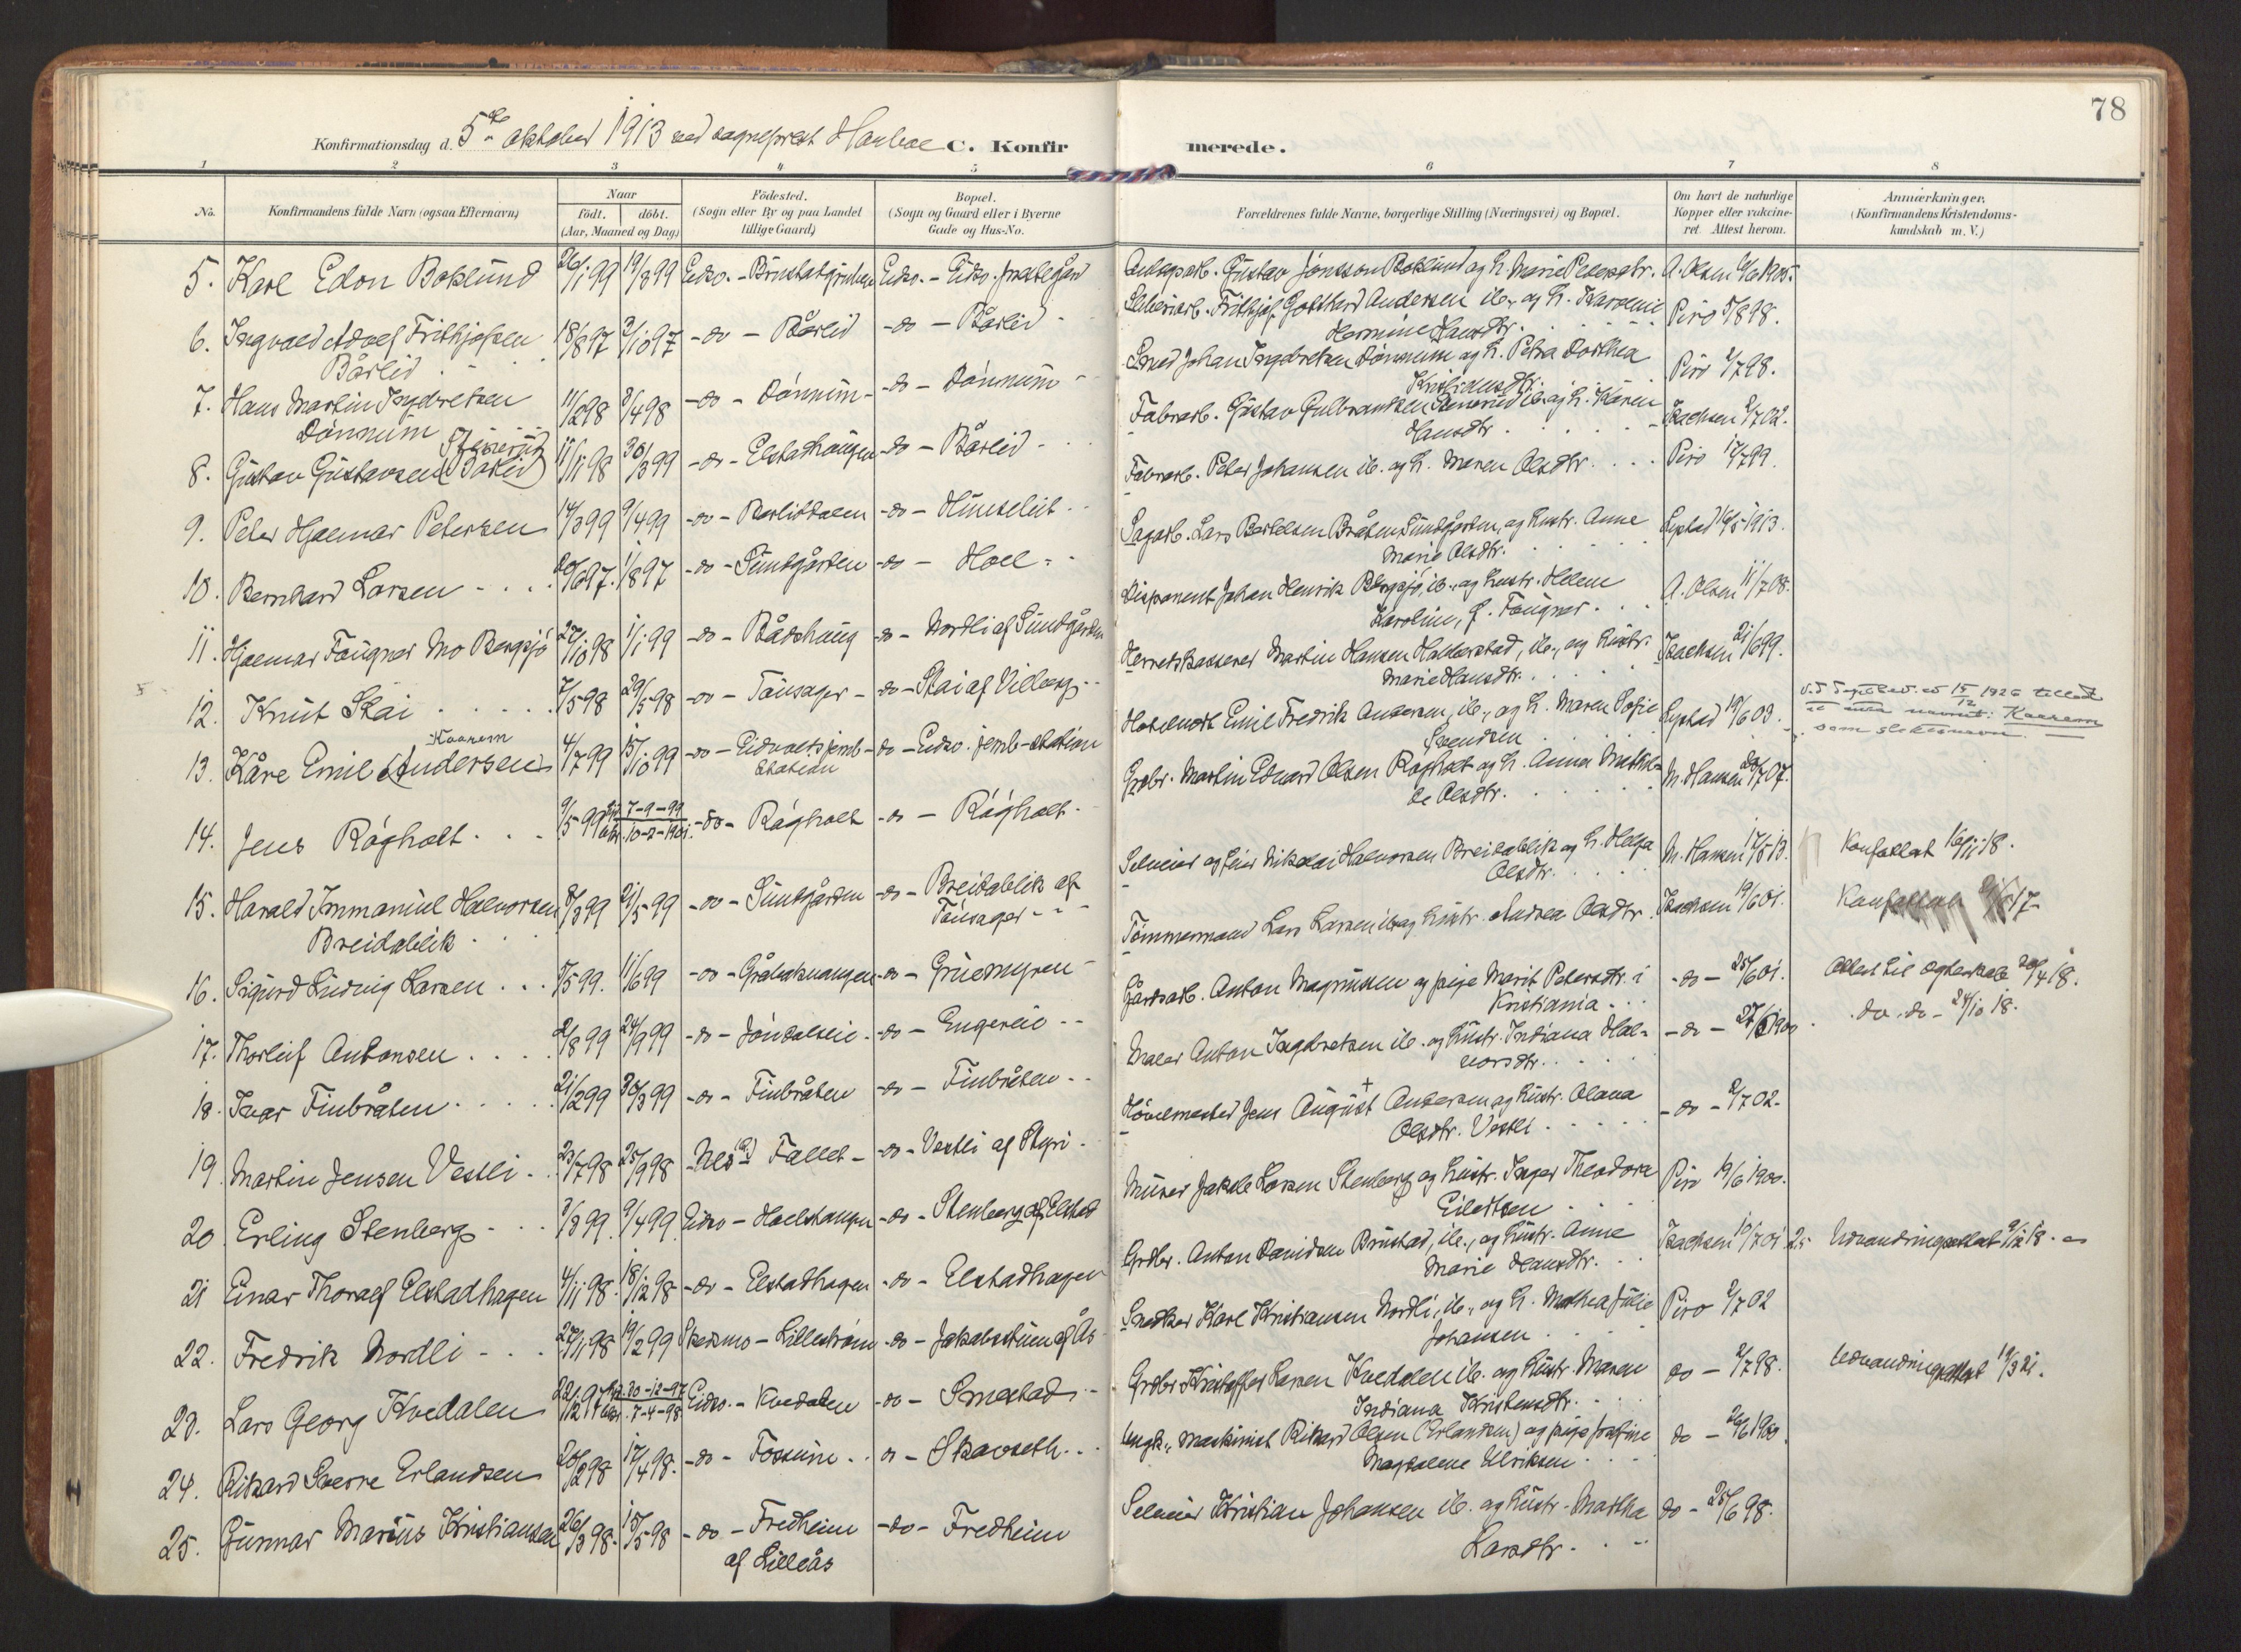 78
Konfirmationsdag d. 5te oktober 1913 ved sogneprest Hauboe C. Konfirmerede.
1 2 3 4 5 6 7 8
No.
Konfirmandens fulde Navn (ogsaa Efternavn)
Naar
födt. döbt.
(Aar, Maaned og Dag)
Födested.
(Sogn eller By og paa Landet
tillige Gaard)
Bopæl.
(Sogn og Gaard eller i Byerne
Gade og Hus-No.
Forældrenes fulde Navne, borgerlige Stilling (Næringsvei) og Bopæl.
Om havt de naturlige
Kopper eller vakcine-
ret. Attest herom.
Anmærkninger.
(Konfirmandens Kristendoms-
kundskab m. V.)
5. Karl Edon Boklund 26/1 99 19/3 99 Eidsv. - Eidsv. prestegård Gustav Jonsson Boklund og h. Marie Petersdtr. A. Olsen 1905
6. Ingvald Adolf Frithjofsen 18/8 97 3/10 97 -do- Bårlid -do- Bårlid Frithjof Gotthard Andersen ib. og h. Karoline Piro 5/8 98.
Bårlid Hermine Hansdtr.
7. Hans Martin Ingebretsen 11/2 98 3/4 98 -do- Dönnum -do- Dönnum Smed Johan Ingebretsen Dönnum og h. Petra Dorthea Piro 2/7 98.
Dönnum Kristiansdtr.
8. Gustav Gustavsen (Bårlid) 11/11 98 30/3 99 -do- Elstadhaugen -do- Bårlid Fabrarb. Gustav Gulbrandsen ib. og h. Karen Isachsen 2/7 02.
Hansdtr.
9. Peter Hjalmar Petersen 14/3 99 9/4 99 -do- Bårlidalen -do- Fabrarb. Peter Johansen ib. og h. Maren Olsdtr. Piro 12/7 99.
10. Bernhard Larsen 20/6 97. 1/8 97 -do- Sundgården -do- Hoel Sagarb. Lars Bertelsen Bråten Sundgården, og hustr. Anne Lystad 16/5 1913.
Marie Olsdtr.
11. Hjalmar Fougner Mo Bergsjö 27/10 98 1/1 99 -do- Rådshaug -do- Nordli af Sundgården Disponent Johan Henrik Bergsjö, ib., og hustr. Helene A. Olsen 11/7 08.
Karoline, f. Fougner
12. Knut Stai 7/5 98 29/5 98 -do- Tønsager -do- Stai af Vilberg Herredskasserer Martin Hansen Halderstad, ib., og hustr. Isachsen 21/6 99.
Marie Hansdtr.
13. Kåre Emil (Andersen) Kaarem 4/7 99 15/10 99 -do- Eidsvolts jernb-station -do- Eidsv. jernb-station Hotelvert Emil Fredrik Andersen, ib., og h. Maren Sofie Lystad 19/6 03.
Svendsen
15/12 1926 tillatt
navnet: Kaarem
som slektsnavn
14. Jens Rågholt 9/5 99 7-9-99 10-2-1901. -do- Rågholt -do- Rågholt Grdbr. Martin Edvard Olsen Rågholt og h. Anna M. Hansen 20/7 07.
Olsdtr.
15. Harald Immanuel Halvorsen 8/3 99 21/5 99 -do- Sundgården -do- Breidablik af Selveier og Nikolai Halvorsen Breidablik og h. Helga M. Hansen 17/5 13. Konfattest 16/11 18.
Breidablik Tønsager Olsdtr.
16. Sigurd Ludvig Larsen 5/5 99. 11/6 99 -do- -do- Gruemyren Tömmermand Lars Larsen ib. og hustr. Andrea Olsdtr. Isachsen 19/6 01. Konfattest 17
17. Thorleif Antonsen 2/8 99 24/9 99 -do- -do- Engerlie Gårdsarb. Anton Magnussen og pige Marit Petersdtr. i -do- 25/6 01. Attest til ægteskab 20/4 18.
Kristiania
18. Ivar Finbråten 21/2 99 30/3 99 -do- Finbråten -do- Finbråten Maler Anton Ingebretsen ib. og hustr. Indiana Hal- -do- 27/6 1900. do. do. 24/10 18.
vorsdtr.
19. Martin Jensen Vestli 23/7 98 25/9 98 Nes Fallet -do- Vestli af Styri Hövelmester Jens August Andersen og hustr. Olava -do- 2/7 02.
Olsdtr. Vestli
20. Erling Stenberg 3/3 99. 9/4 99. Eidsv. - Hoelshaugen -do- Stenberg af Elstad Murer Jakob Larsen Stenberg og hustr. Inger Theodora Piro 19/6 1900.
Eilertsen
21 Einar Thoralf Elstadhagen 4/11 98. 18/12 98 -do- Elstadhagen -do- Elstadhagen Grdbr. Anton Davidsen Brustad, ib., og hustr. Anne Isachsen 10/7 01 Udvandringsattest 9/12 18.
Marie Hansdtr.
22. Fredrik Nordli 27/11 98 19/2 99 Skedsmo - Lillestrøm -do- Jakobstuen af Ås Snedker Karl Kristiansen Nordli, ib., og h. Mathea Julie Piro 2/7 02
Johansen
23. Lars Georg Kvedalen 22/12 97 30-12-97 7-4-98 Eidsv. - Kvedalen -do- Smestad Grdbr Kristoffer Larsen Kvedalen ib. og hustr. Maren do - 2/7 98. Udvandringsattest 19/3 21.
Indiana Kristensdtr.
24. Rikard Sverre Erlandsen 20/2 98 17/4 98. -do- Fossum do - Skavseth Ungk., maskinist Rikard Olsen (Erlandsen) og pige Josefine do - 26/6 1900.
Magdalene Ulriksen
25. Gunnar Marius Kristiansen 26/3 98. 15/5 98 -do- Fredheim -do- Fredheim Selveier Kristian Johansen ib. og hustr. Martha do - 25/6 98.
af Lilleås Larsdtr.